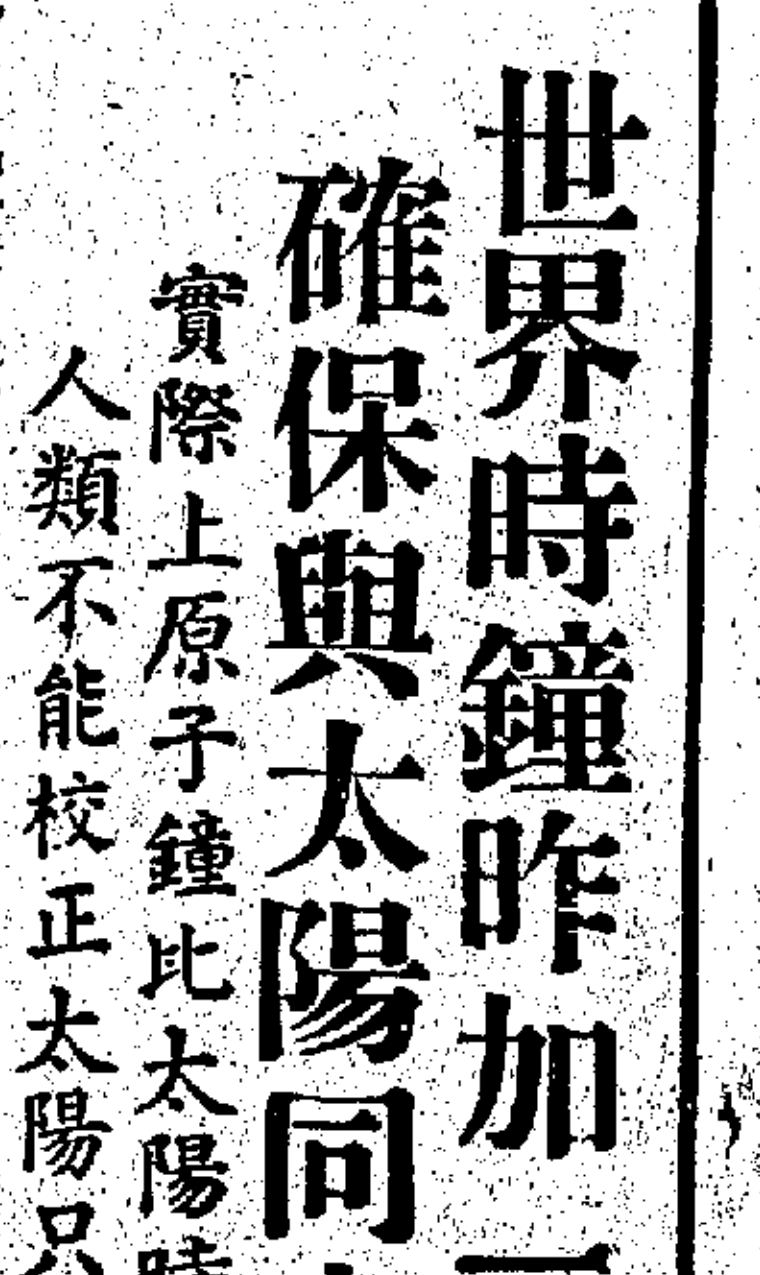 世界時鐘昨加
確保與太陽同
實際上原子鐘比太陽時
人類不能校正太陽只